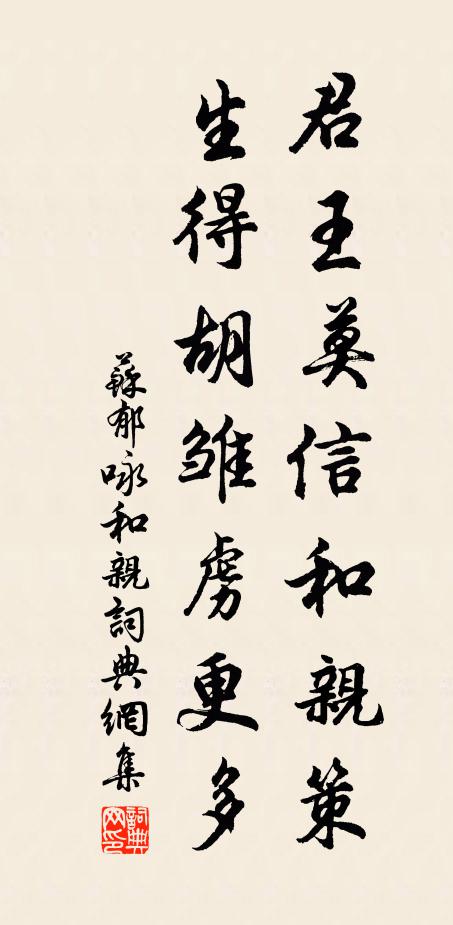 君王莫信和親策
生得胡雛虜更多
蘇郁咏和親詞典網集
詞典網印